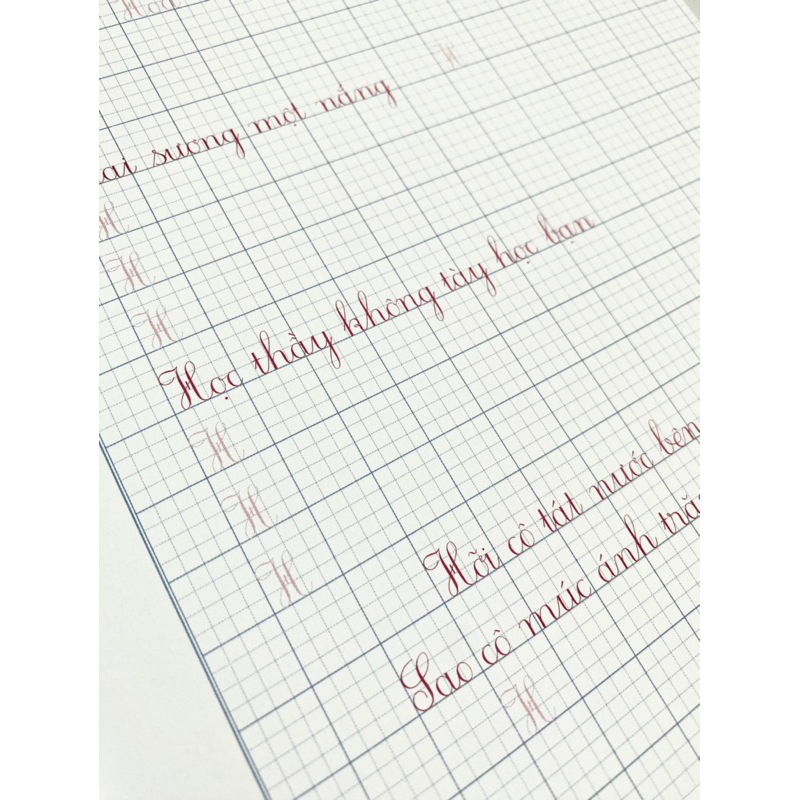 H
ai sương một nắng
H
H
H
Học thầy không tày học bạn
H
H
H
Hỡi cô tát nước bên
Sao cô múc ánh
H